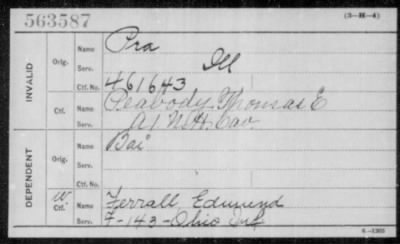 563587
(3-H-4)
INVALID
Orig.
Name
Pra
Serv.
Ill
Ctf. No.
461643
Ctf.
Name
Peabody, Thomas E
Serv.
A, 1 N.H. Cav.
DEPENDENT
Orig.
Name
Bai
Serv.
Ctf. No.
W
Ctf.
Name
Ferrall Edmund
Serv.
F-143-Ohio Inf